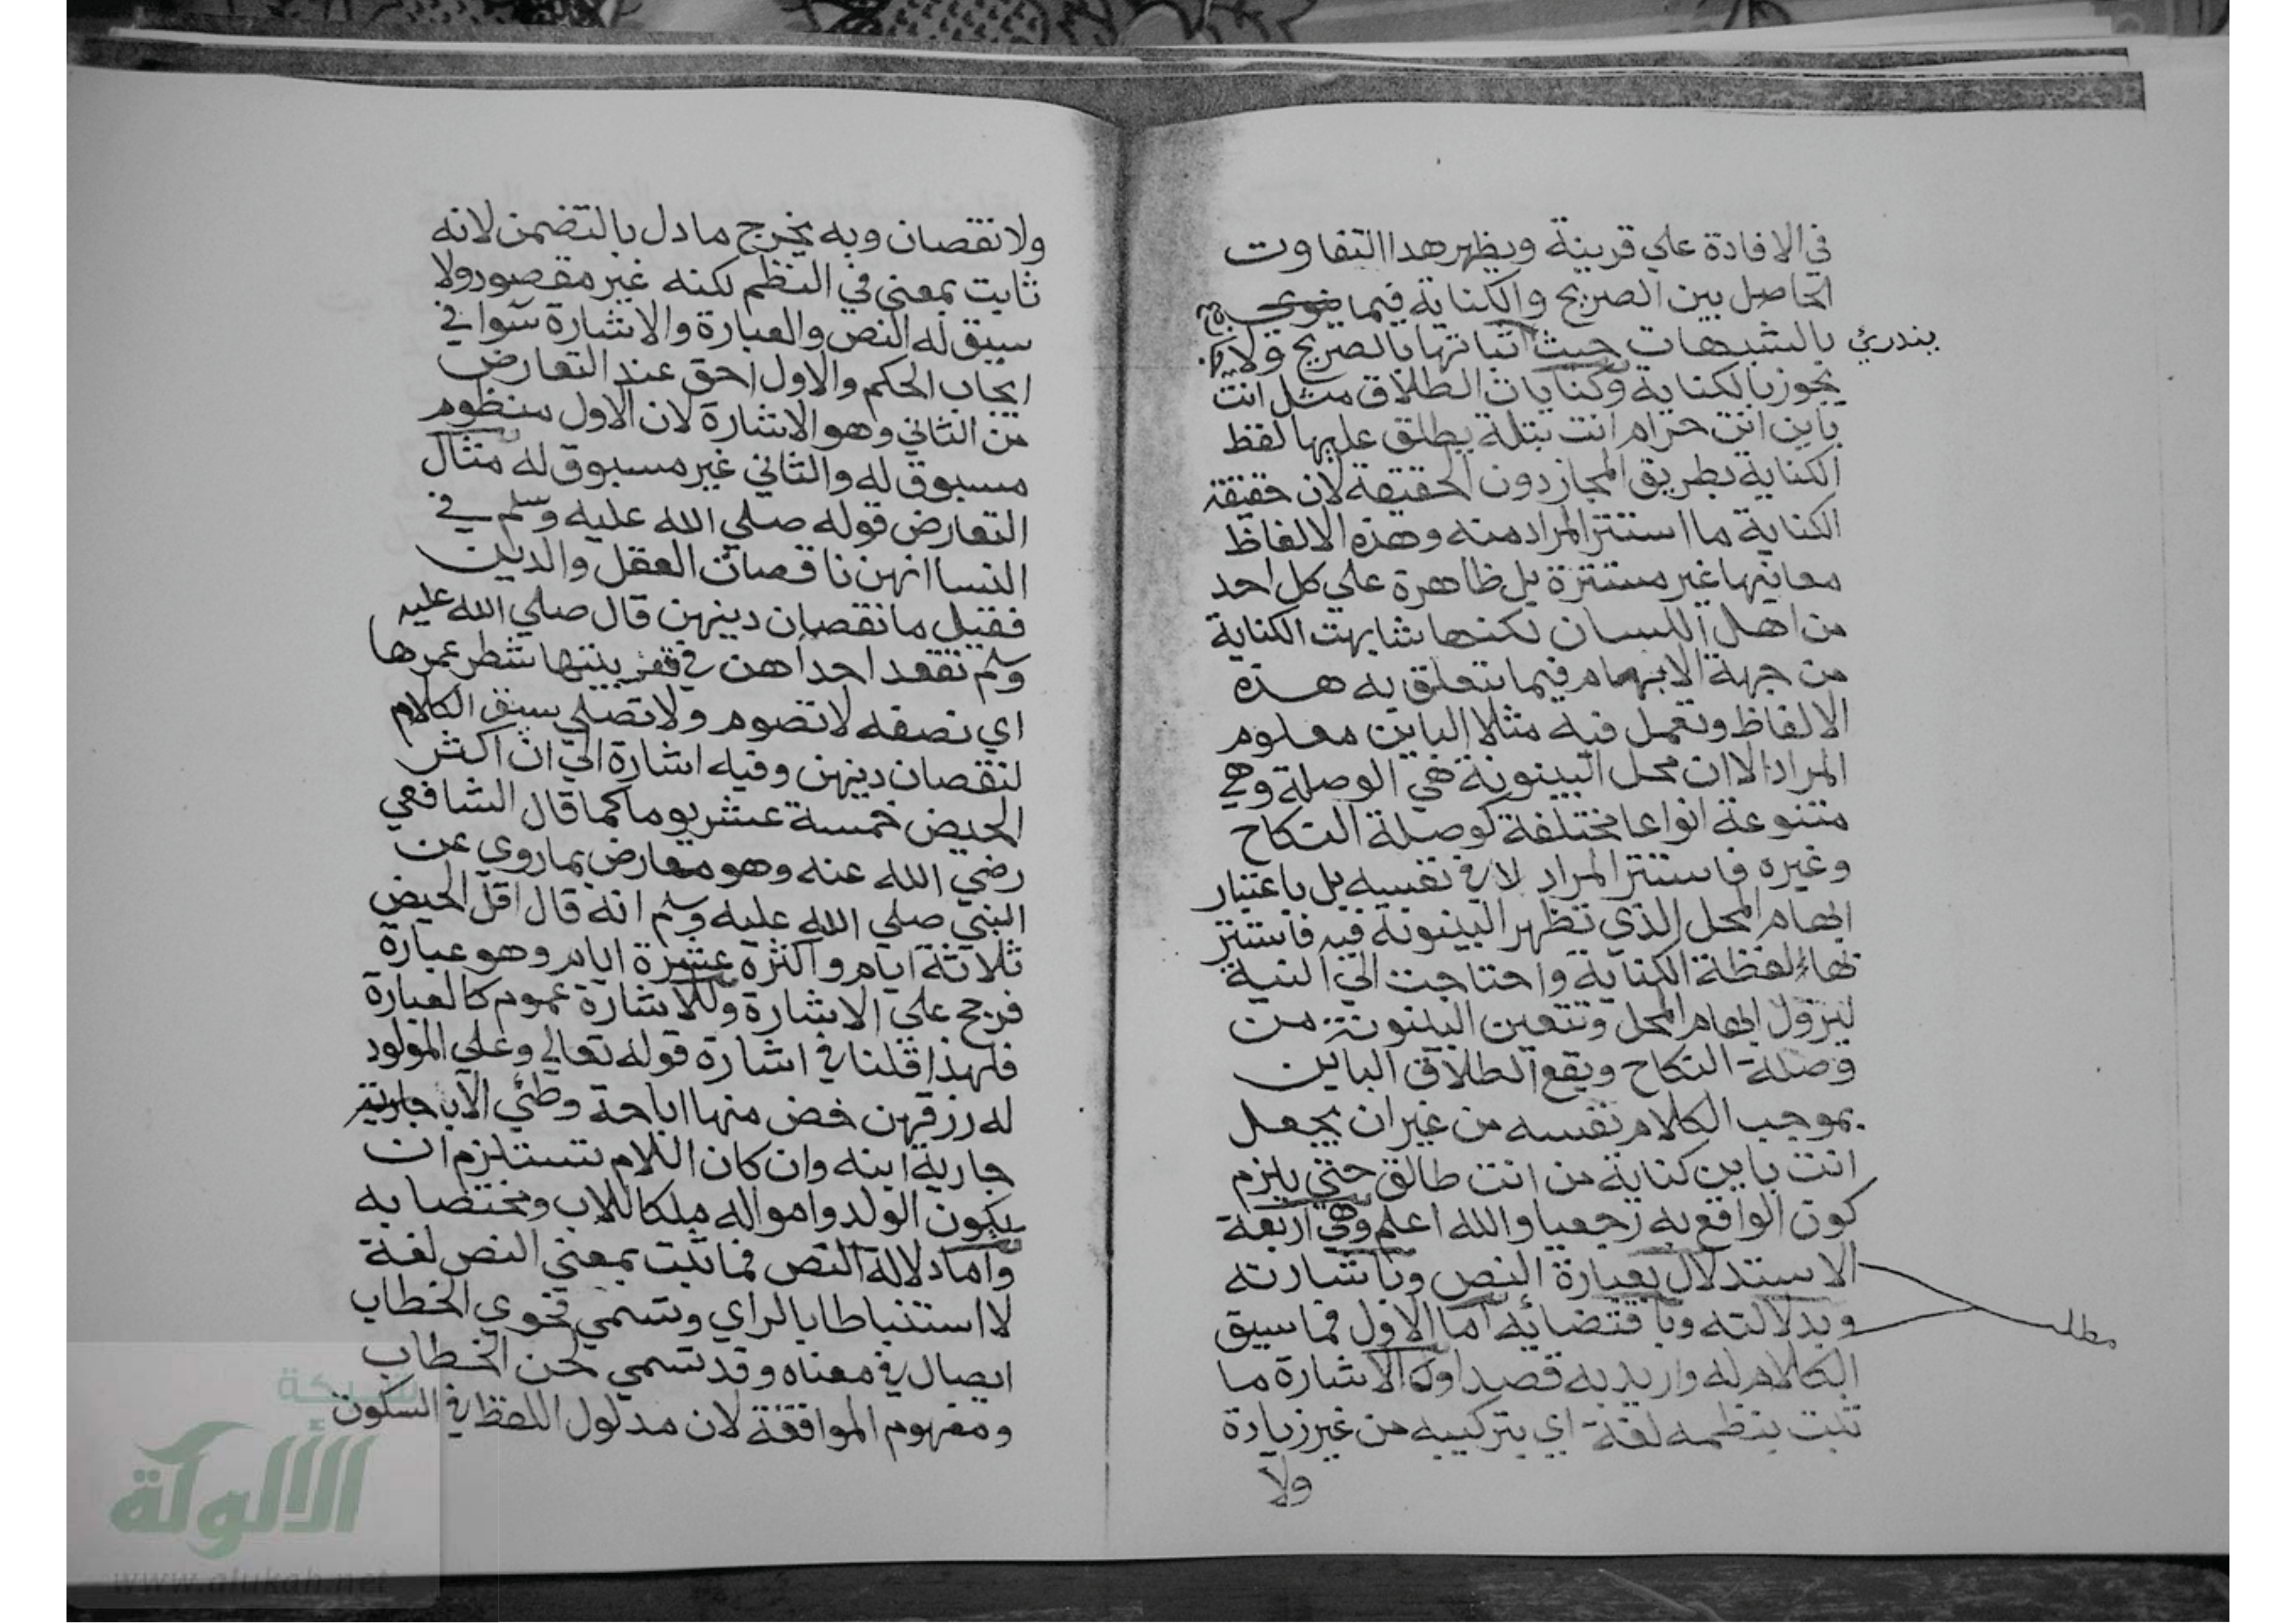 في الافادة علي قرينة ويظهر هدا التفاوت
الحاصل بين الصريح والكناية فيما
يندرئ
بالشبهات حيث اثباتها بالصريح ولا
يجوز بالكناية وكنايات الطلاق مثل انت
باين انت حرام انت بتلة يطلق عليها لفظ
الكناية بطريق المجاز دون الحقيقة لان حقيقة
الكناية ما استتر المراد منه وهذه الالفاظ
معانيها غير مستترة بل ظاهرة علي كل احد
من اهل اللسان لكنها شابهت الكناية
من جهة الابهام فيما يتعلق به هذه
الالفاظ وتعمل فيه مثلا الباين معلوم
المراد الا ان محل البينونة هي الوصلة وهي
متنوعة انواعا مختلفة كوصلة النكاح
وغيره فاستتر المراد لا في نفسه بل باعتبار
ابهام المحل الذي تظهر البينونة فيه فاستتر
لها لفظة الكناية واحتاجت الي النية
ليزول ابهام المحل وتتعين البينونة من
وصلة النكاح ويقع الطلاق الباين
بموجب الكلام نفسه من غير ان يجعل
انت باين كناية من انت طالق حتي يلزم
كون الواقع به رجعيا والله اعلم وهي اربعة
الاستدلال بعبارة النص وباشارته
وبدلالته وباقتضائه اما الاول فما سيق
مطلب
الكلام له واريد به قصدا والاشارة ما
ثبت بنظمه لغة اي بتركيبه من غير زيادة
ولا
ولا نقصان وبه يخرج ما دل بالتضمن لانه
ثابت بمعني في النظم لكنه غير مقصود ولا
سيق له النص والعبارة والاشارة سوا في
ايجاب الحكم والاول احق عند التعارض
من الثاني وهو الاشارة لان الاول منظوم
مسبوق له والثاني غير مسبوق له مثال
التعارض قوله صلي الله عليه وسلم في
النسا انهن ناقصات العقل والدين
فقيل ما نقصان دينهن قال صلي الله عليه
وسلم تقعد احداهن في قعر بيتها شطر عمرها
اي نصفه لا تصوم ولا تصلي سيق الكلام
لنقصان دينهن وفيه اشارة الي ان اكثر
الحيض خمسة عشر يوما كما قال الشافعي
رضي الله عنه وهو معارض بما روي عن
النبي صلي الله عليه وسلم انه قال اقل الحيض
ثلاثة ايام واكثره عشرة ايام وهو عبارة
فرجح علي الاشارة وللاشارة عموم كالعبارة
فلهذا قلنا في اشارة قوله تعالي وعلي المولود
له رزقهن خص منها اباحة وطئ الاب
جارية ابنه وان كان اللام تستلزم ان
يكون الولد وامواله ملكا للاب ومختصا به
واما دلالة النص فما ثبت بمعني النص لغة
لا استنباطا بالراي وتسمي فحوي الخطاب
ايصال في معناه وقد تسمي لحن الخطاب
ومفهوم الموافقة لان مدلول اللفظ في السكوت
شبكة
الألوكة
www.alukah.net